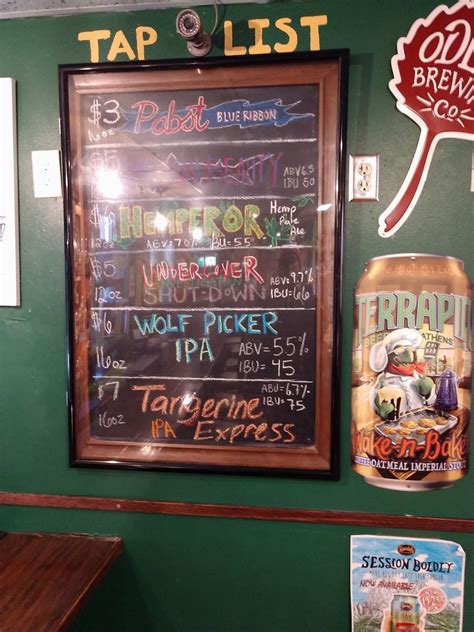 TAP LIST
$3 Pabst BLUE RIBBON
16oz
$5 ABV 6.5
IBU 50
HEMPEROR Hemp
Pale
Ale
12oz ABV= 7.0% IBU= 55
$5 UNDERCOVER ABV= 9.7%
12oz SHUT-DOWN IBU= 66
$6 WOLF PICKER
IPA ABV= 5.5%
16oz IBU= 45
$7 Tangerine ABV= 6.7%
IBU= 75
16oz IPA Express
BREWING
CO
TERRAPIN
ATHENS
Wake-n-Bake
COFFEE OATMEAL IMPERIAL STOUT
SESSION BOLDLY
NOW AVAILABLE